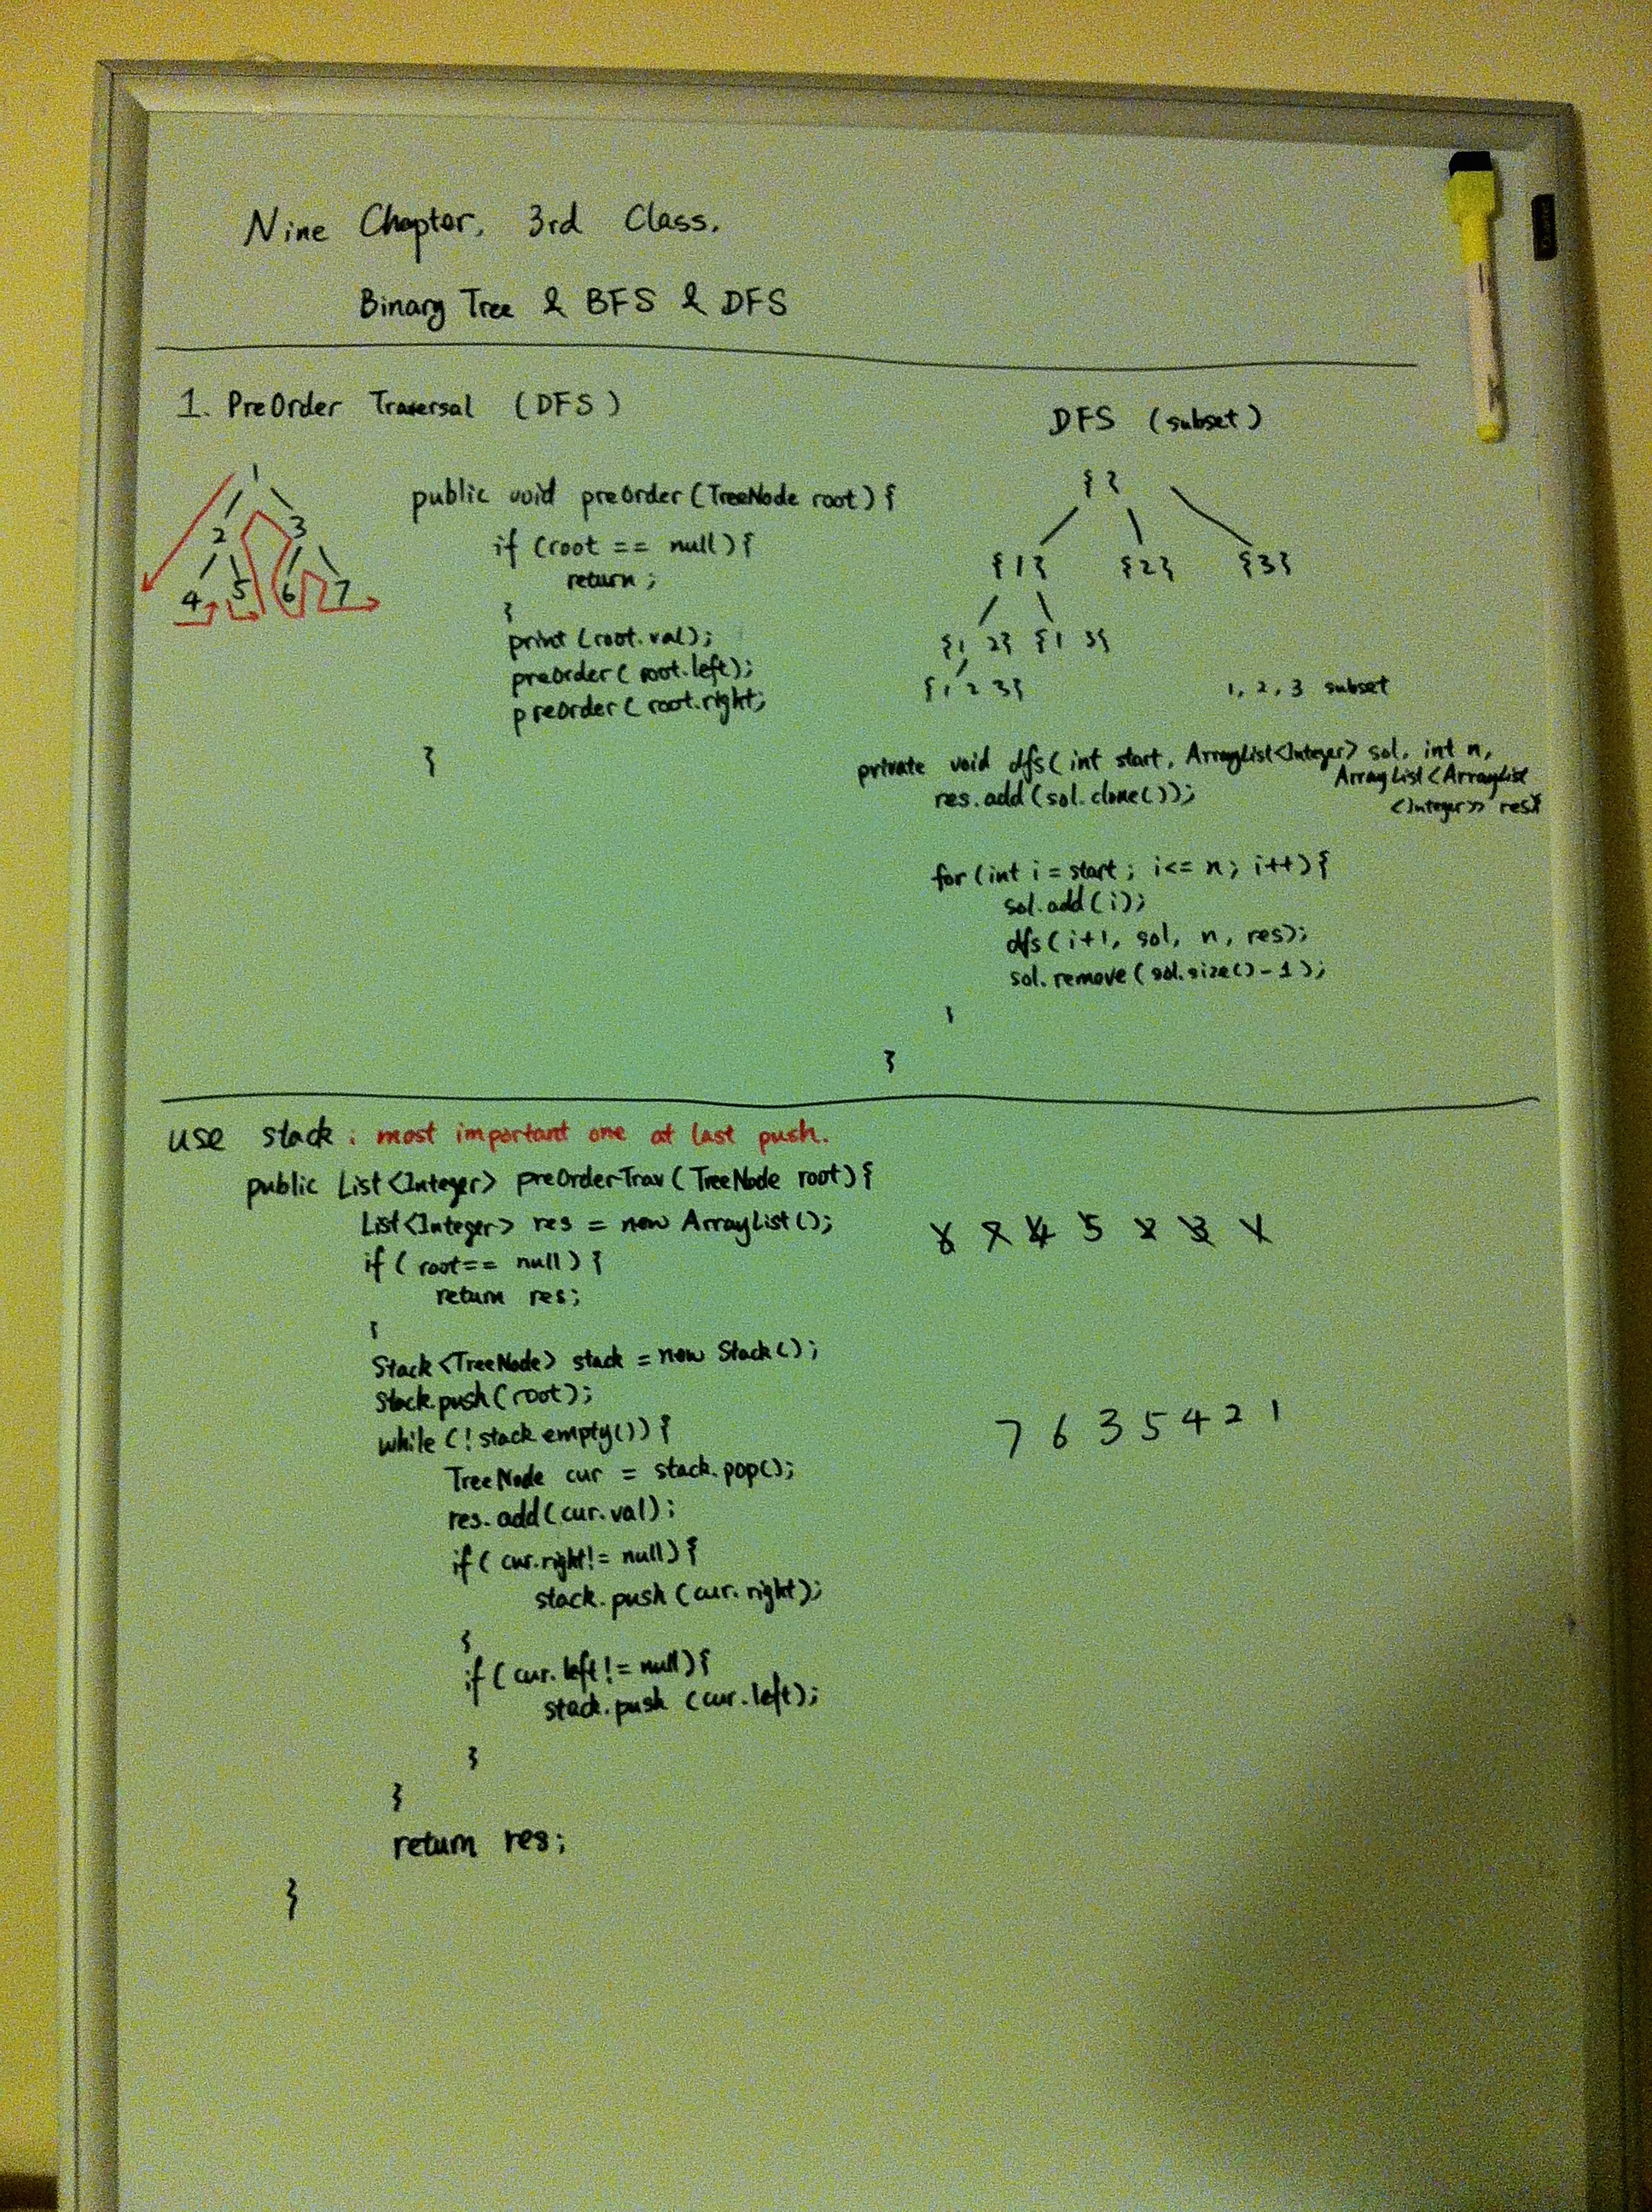 Nine Chapter, 3rd Class.
Binary Tree & BFS & DFS
1. PreOrder Traversal (DFS)
1
2 3
4 5 6 7
public void preOrder (TreeNode root) {
if (root == null) {
return ;
}
print (root.val);
preOrder ( root.left);
preOrder ( root.right;
}
DFS (subset)
{ }
{1} {2} {3}
{1 2} {1 3}
{1 2 3}
1, 2, 3 subset
private void dfs( int start, ArrayList<Integer> sol, int n,
ArrayList<ArrayList
<Integer>> res){
res.add(sol.clone());
for (int i = start ; i <= n ; i++) {
sol.add(i);
dfs( i+1, sol, n, res);
sol.remove ( sol.size() - 1 );
}
}
use stack : most important one at last push.
public List<Integer> preOrderTrav ( TreeNode root) {
List<Integer> res = new ArrayList();
if ( root == null) {
return res;
}
Stack <TreeNode> stack = new Stack();
Stack.push (root);
while (! stack empty()) {
TreeNode cur = stack.pop();
res.add(cur.val);
if ( cur.right != null) {
stack.push (cur.right);
}
if ( cur.left != null) {
stack.push (cur.left);
}
}
return res;
}
6 7 4 5 2 3 1
7 6 3 5 4 2 1